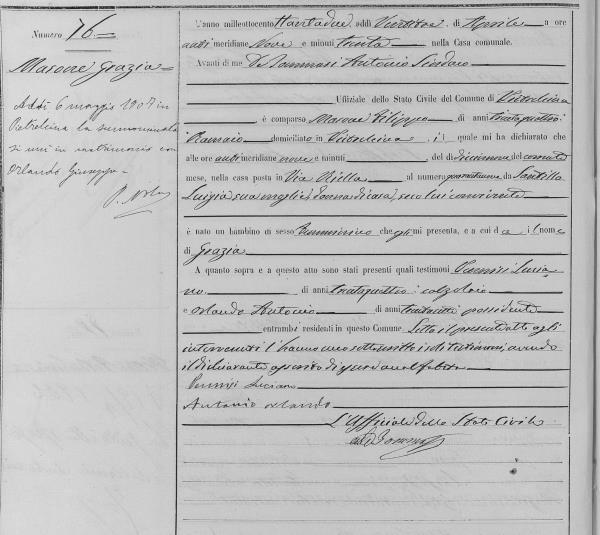 Numero 76
Marone Grazia
Addì 6 maggio 1907 in
Pietrelcina la surnominata
si unì in matrimonio con
Orlando Giuseppe
L'anno milleottocento addì Ventitre di Aprile a ore
anti meridiane Nove e minuti trenta nella Casa comunale.
Avanti di me De Tommasi Antonio Sindaco
Uffiziale dello Stato Civile del Comune di Pietrelcina
è comparso Marone Filippo di anni trentaquattro
Ramaio domiciliato in Pietrelcina il quale mi ha dichiarato che
alle ore anti meridiane nove e minuti del dì del corrente
mese, nella casa posta in Via Riella al numero quarantanove da Santilla
Luigia sua moglie, donna di casa, seco lui convivente
è nato un bambino di sesso femminino che egli mi presenta, e a cui dà il nome
di Grazia
A quanto sopra e a questo atto sono stati presenti quali testimoni Lucia
no di anni trentaquattro calzolaio
e Orlando Antonio di anni possidente
entrambi residenti in questo Comune Letto il presente atto agli
intervenuti l'hanno meco sottoscritto i testimoni, avendo
il dichiarante asserito di essere analfabeta
Luciano
Antonio Orlando
L'Uffiziale dello Stato Civile